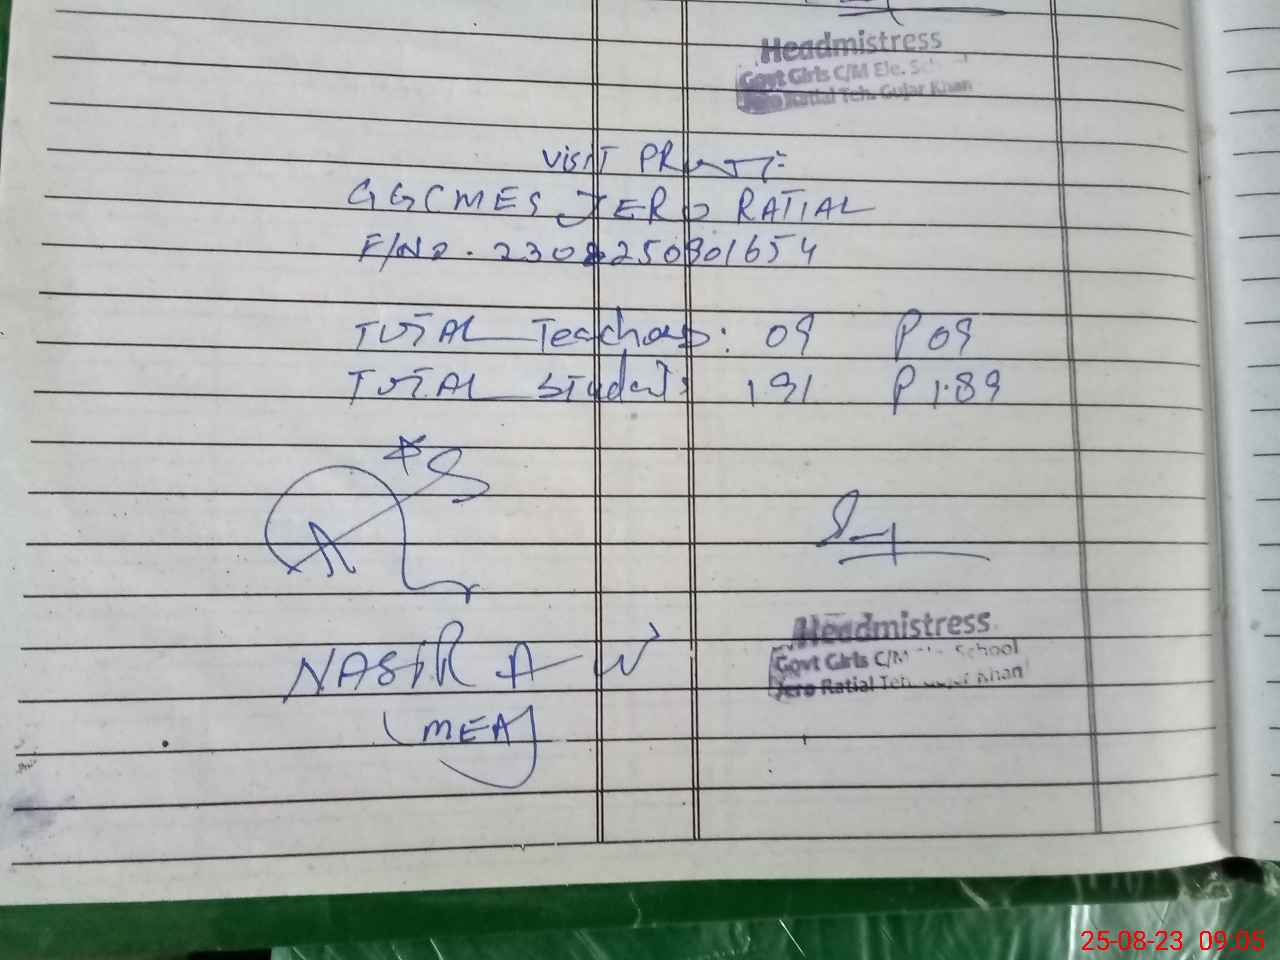 Headmistress
Govt Girls C/M Ele. School
Jero Ratial Teh. Gujar Khan
Visit PR
GGCMES JERO RATIAL
F/No. 2308250901654
TOTAL Teachers: 09 P 09
TOTAL Students 191 P 189
NASIR A W
(MEA)
Headmistress
Govt Girls C/M Ele. School
Jero Ratial Teh. Gujar Khan
25-08-23 09:05